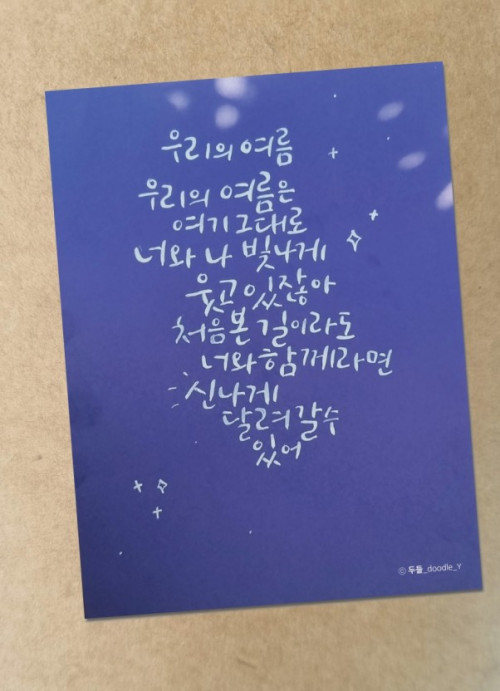 우리의 여름
우리의 여름은
여기 그대로
너와 나 빛나게
웃고 있잖아
처음 본 길이라도
너와 함께라면
신나게
달려갈 수
있어
© 두들_doodle_Y